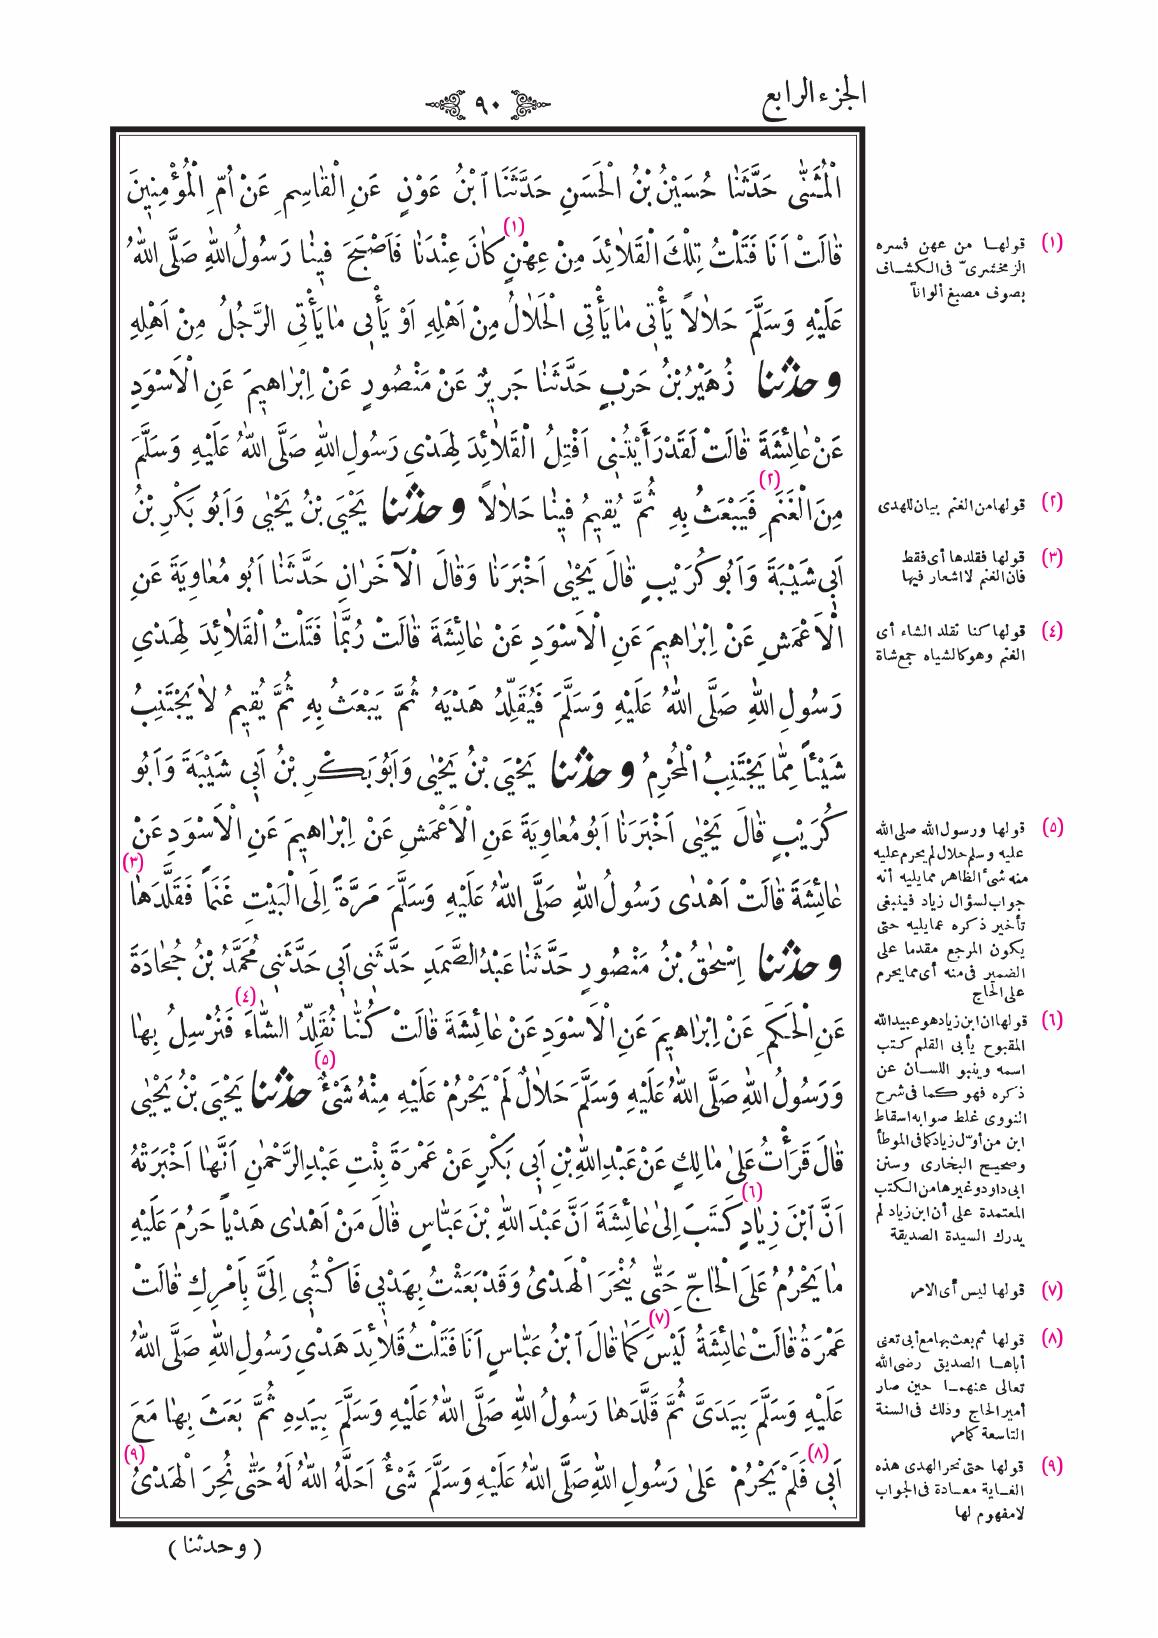 الجزء الرابع
٩٠
الْمُثَنّٰى حَدَّثَنٰا حُسَيْنُ بْنُ الْحَسَنِ حَدَّثَنَا ابْنُ عَوْنٍ عَنِ الْقٰاسِمِ عَنْ اُمِّ الْمُؤْمِنِينَ
قٰالَتْ اَنَا فَتَلْتُ تِلْكَ الْقَلاٰئِدَ مِنْ عِهْنٍ (١) كٰانَ عِنْدَنٰا فَاَصْبَحَ فِينٰا رَسُولُ اللّٰهِ صَلَّى اللّٰهُ
عَلَيْهِ وَسَلَّمَ حَلاٰلاً يَأْتِى مٰا يَأْتِى الْحَلاٰلُ مِنْ اَهْلِهِ اَوْ يَأْتِى مٰا يَأْتِى الرَّجُلُ مِنْ اَهْلِهِ
وحدثنا زُهَيْرُ بْنُ حَرْبٍ حَدَّثَنٰا جَرِيرٌ عَنْ مَنْصُورٍ عَنْ اِبْرٰاهِيمَ عَنِ الْاَسْوَدِ
عَنْ عٰائِشَةَ قٰالَتْ لَقَدْ رَأَيْتُنِى اَفْتِلُ الْقَلاٰئِدَ لِهَدْىِ رَسُولِ اللّٰهِ صَلَّى اللّٰهُ عَلَيْهِ وَسَلَّمَ
مِنَ الْغَنَمِ (٢) فَيَبْعَثُ بِهِ ثُمَّ يُقِيمُ فِينٰا حَلاٰلاً وحدثنا يَحْيَى بْنُ يَحْيٰى وَاَبُو بَكْرِ بْنُ
اَبِى شَيْبَةَ وَاَبُو كُرَيْبٍ قٰالَ يَحْيٰى اَخْبَرَنٰا وَقٰالَ الْآخَرٰانِ حَدَّثَنٰا اَبُو مُعٰاوِيَةَ عَنِ
الْاَعْمَشِ عَنْ اِبْرٰاهِيمَ عَنِ الْاَسْوَدِ عَنْ عٰائِشَةَ قٰالَتْ رُبَّمٰا فَتَلْتُ الْقَلاٰئِدَ لِهَدْىِ
رَسُولِ اللّٰهِ صَلَّى اللّٰهُ عَلَيْهِ وَسَلَّمَ فَيُقَلِّدُ هَدْيَهُ ثُمَّ يَبْعَثُ بِهِ ثُمَّ يُقِيمُ لاٰ يَجْتَنِبُ
شَيْئاً مِمّٰا يَجْتَنِبُ الْمُحْرِمُ وحدثنا يَحْيَى بْنُ يَحْيٰى وَاَبُو بَكْرِ بْنُ اَبِى شَيْبَةَ وَاَبُو
كُرَيْبٍ قٰالَ يَحْيٰى اَخْبَرَنٰا اَبُو مُعٰاوِيَةَ عَنِ الْاَعْمَشِ عَنْ اِبْرٰاهِيمَ عَنِ الْاَسْوَدِ عَنْ
عٰائِشَةَ قٰالَتْ اَهْدٰى رَسُولُ اللّٰهِ صَلَّى اللّٰهُ عَلَيْهِ وَسَلَّمَ مَرَّةً اِلَى الْبَيْتِ غَنَماً فَقَلَّدَهٰا (٣)
وحدثنا اِسْحٰقُ بْنُ مَنْصُورٍ حَدَّثَنٰا عَبْدُ الصَّمَدِ حَدَّثَنِى اَبِى حَدَّثَنِى مُحَمَّدُ بْنُ جُحٰادَةَ
عَنِ الْحَكَمِ عَنْ اِبْرٰاهِيمَ عَنِ الْاَسْوَدِ عَنْ عٰائِشَةَ قٰالَتْ كُنّٰا نُقَلِّدُ الشّٰاءَ (٤) فَنُرْسِلُ بِهٰا
وَرَسُولُ اللّٰهِ صَلَّى اللّٰهُ عَلَيْهِ وَسَلَّمَ حَلاٰلٌ لَمْ يَحْرُمْ عَلَيْهِ مِنْهُ شَىْءٌ (٥) حدثنا يَحْيَى بْنُ يَحْيٰى
قٰالَ قَرَأْتُ عَلىٰ مٰالِكٍ عَنْ عَبْدِ اللّٰهِ بْنِ اَبِى بَكْرٍ عَنْ عَمْرَةَ بِنْتِ عَبْدِ الرَّحْمٰنِ اَنَّهٰا اَخْبَرَتْهُ
اَنَّ ابْنَ زِيٰادٍ (٦) كَتَبَ اِلىٰ عٰائِشَةَ اَنَّ عَبْدَ اللّٰهِ بْنَ عَبّٰاسٍ قٰالَ مَنْ اَهْدٰى هَدْياً حَرُمَ عَلَيْهِ
مٰا يَحْرُمُ عَلَى الْحٰاجِّ حَتّٰى يُنْحَرَ الْهَدْىُ وَقَدْ بَعَثْتُ بِهَدْيِى فَاكْتُبِى اِلَىَّ بِاَمْرِكِ قٰالَتْ
عَمْرَةُ قٰالَتْ عٰائِشَةُ لَيْسَ (٧) كَمٰا قٰالَ ابْنُ عَبّٰاسٍ اَنَا فَتَلْتُ قَلاٰئِدَ هَدْىِ رَسُولِ اللّٰهِ صَلَّى اللّٰهُ
عَلَيْهِ وَسَلَّمَ بِيَدَىَّ ثُمَّ قَلَّدَهٰا رَسُولُ اللّٰهِ صَلَّى اللّٰهُ عَلَيْهِ وَسَلَّمَ بِيَدِهِ ثُمَّ بَعَثَ بِهٰا مَعَ
اَبِى (٨) فَلَمْ يَحْرُمْ عَلىٰ رَسُولِ اللّٰهِ صَلَّى اللّٰهُ عَلَيْهِ وَسَلَّمَ شَىْءٌ اَحَلَّهُ اللّٰهُ لَهُ حَتّٰى نُحِرَ الْهَدْىُ (٩)
( وحدثنا )
(١) قولهـا من عهن فسره
الزمخشرىّ فى الكشـاف
بصوف مصبغ ألواناً
(٢) قولها من الغنم بيان للهدى
(٣) قولها فقلدها أى فقط
فان الغنم لا اشعار فيها
(٤) قولها كنا نقلد الشاء أى
الغنم وهو كالشياه جمع شاة
(٥) قولها ورسول الله صلى الله
عليه وسلم حلال لم يحرم عليه
منه شىء الظاهر مما يليه أنه
جواب لسؤال زياد فينبغى
تأخير ذكره عما يليه حتى
يكون المرجع مقدما على
الضمير فى منه أى مما يحرم
على الحاج
(٦) قولها ان ابن زياد هو عبيد الله
المقبوح يأبى القلم كتب
اسمه وينبو اللسـان عن
ذكره فهو كما فى شرح
النووى غلط صوابه اسقاط
ابن من أوّل زياد كما فى الموطأ
وصحيح البخارى وسنن
ابى داود وغيرها من الكتب
المعتمدة على أن ابن زياد لم
يدرك السيدة الصديقة
(٧) قولها ليس أى الامر
(٨) قولها ثم بعث بها مع أبى تعنى
أباهـا الصديق رضى الله
تعالى عنهمـا حين صار
أمير الحاج وذلك فى السنة
التاسعة كما مر
(٩) قولها حتى نحر الهدى هذه
الغـاية معـادة فى الجواب
لا مفهوم لها